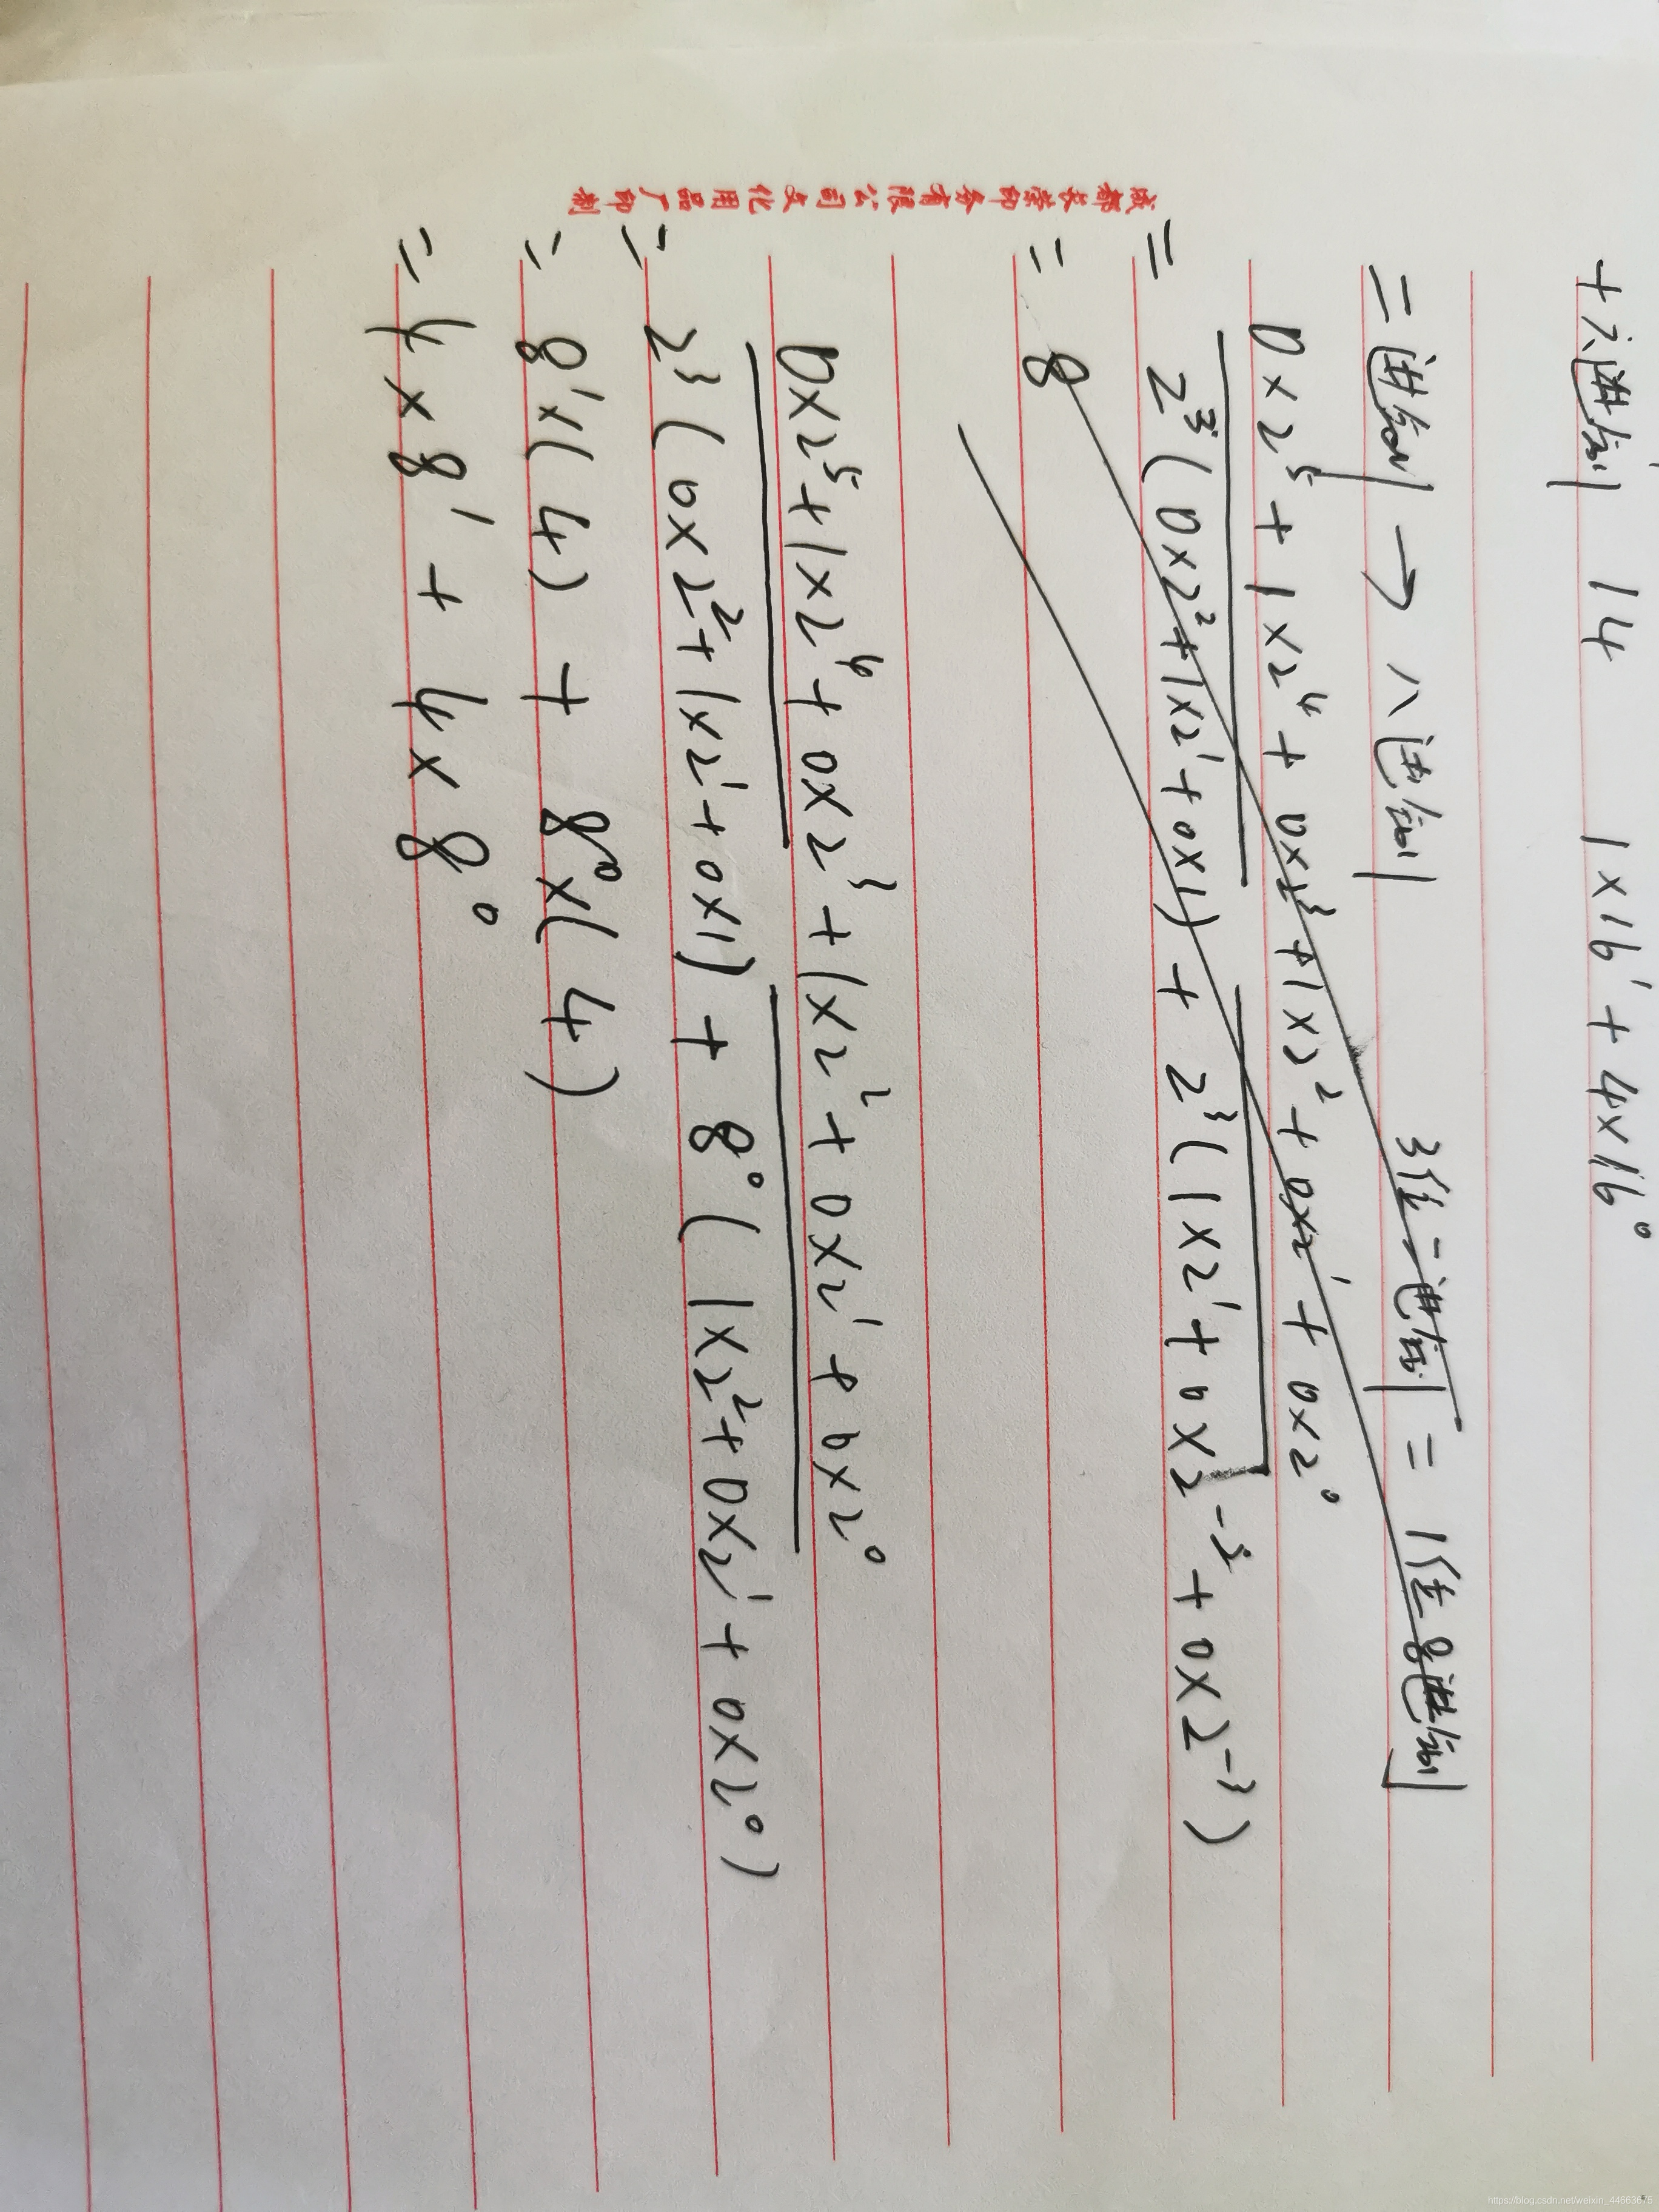 十六进制 14 1×16¹ + 4×16⁰
二进制 → 八进制 3位二进制 = 1位8进制
0×2⁵ + 1×2⁴ + 0×2³ + 1×2² + 0×2¹ + 0×2⁰
= 2³(0×2² + 1×2¹ + 0×1) + 2³(1×2¹ + 0×2⁻³ + 0×2⁻³)
= 8
0×2⁵ + 1×2⁴ + 0×2³ + 1×2² + 0×2¹ + 0×2⁰
= 2³(0×2² + 1×2¹ + 0×1) + 8⁰(1×2² + 0×2¹ + 0×2⁰)
= 8¹×(4) + 8⁰×(4)
= 4×8¹ + 4×8⁰
成都长荣印务有限公司文化用品厂印制
https://blog.csdn.net/weixin_44663675